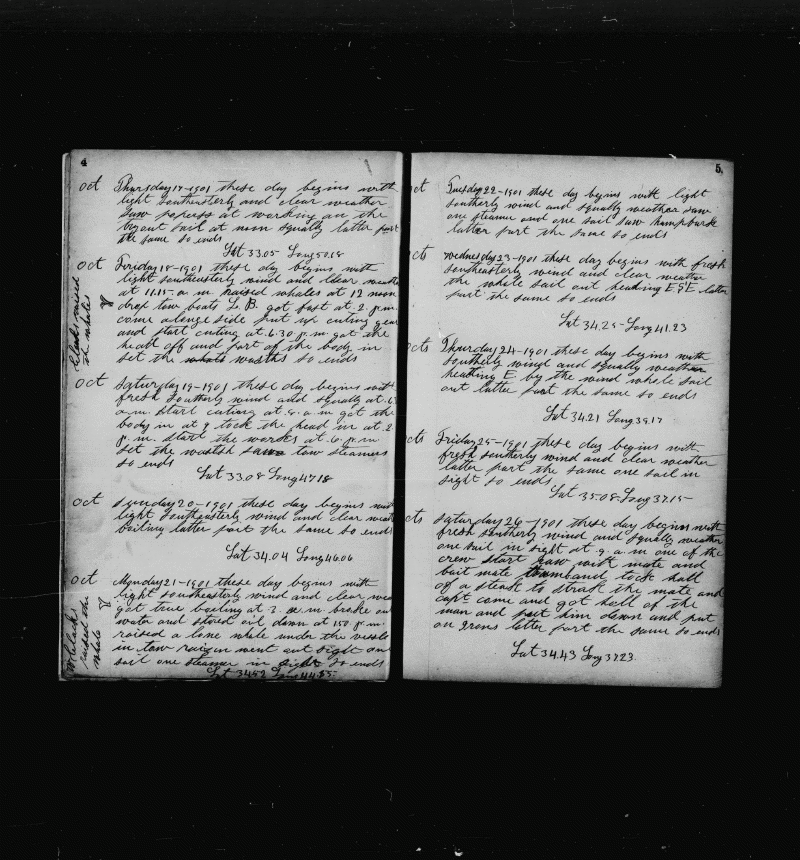 4
oct Thursday 17-1901 these day begins with
light southeasterly and clear weather
saw at working on the
sail at noon squally latter part
the same so ends
Lat 33.05 Long 50.18
oct Friday 18-1901 these day begins with
light southeasterly wind and clear
at 11.15 a. m. raised whales at 12 noon
drop tow boats L. B. got fast at 2 p.m.
come alenge side put up cuting gear
and start cuting at 6.30 p.m. got the
head off and part of the body in
set the so ends
raised
the whales
oct Saturday 19-1901 these day begins with
fresh southerly wind and squally at 6
a.m. start cuting at 8. a.m got the
body in at 9 tock the head in at 2.
p.m. start the works at 6. p.m
set the saw tow steamers
so ends
Lat 33.08 Long 47.18
oct Sunday 20-1901 these day begins with
light southeasterly wind and clear
boiling latter part the same so ends
Lat 34.04 Long 46.06
oct Monday 21-1901 these day begins with
light southeasterly wind and clear
got true boeling at 3. a.m. broke out
water and stored oil down at 1.50 p.m.
raised a lone whale under the vessele
in tow went out sight one
sail one steamer in sight so ends
Lat 34.52 Long 44.55
raised the
whale
5
oct Tuesday 22-1901 these day begins with light
southerly wind and squally weather saw
one steamer and one sail saw humpbacks
latter part the same so ends
octs Wednesday 23-1901 these day begins with fresh
southeasterly wind and clear weather
the whole sail out heading ESE latter
part the same so ends
Lat 34.25- Long 41.23
octs Thursday 24-1901 these day begins with
southerly wind and squally weather
heading E by the wind whole sail
out latter part the same so ends
Lat 34.21 Long 39.17
octs Friday 25-1901 these day begins with
fresh southerly wind and clear weather
latter part the same one sail in
sight so ends
Lat 35.08 Long 37.15
octs Saturday 26-1901 these day begins with
fresh southerly wind and squally weather
one sail in sight at 9. a.m one of the
crew start with mate and
bait mate and tock hall
of a to strak the mate and
capt came and got hall of the
man and put him down and put
on irons latter part the same so ends
Lat 34.43 Long 37.23